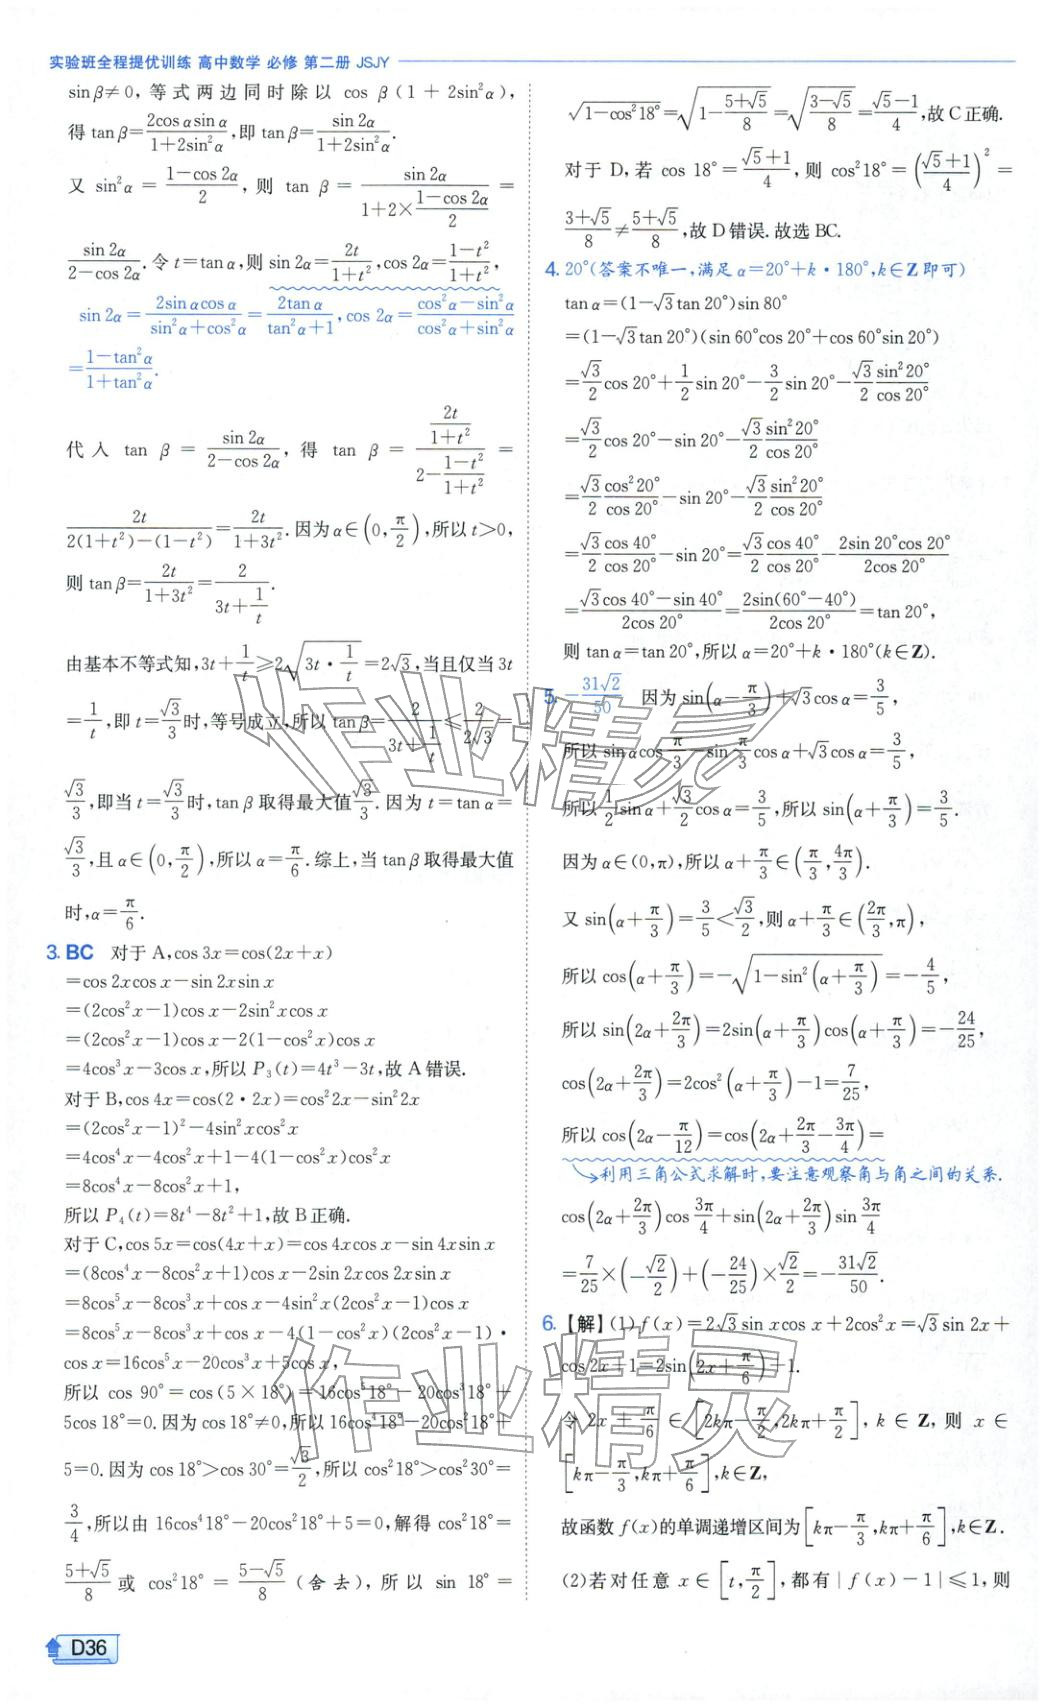 实验班全程提优训练 高中数学 必修 第二册 JSJY
sinβ≠0,等式两边同时除以 cos β(1+2sin²α),
得 tanβ=2cosαsinα/(1+2sin²α),即 tanβ=sin2α/(1+2sin²α).
又 sin²α=(1-cos2α)/2,则 tan β=sin2α/(1+2×(1-cos2α)/2)=
sin2α/(2-cos2α).令 t=tanα,则 sin2α=2t/(1+t²),cos2α=(1-t²)/(1+t²),
sin2α=2sinαcosα/(sin²α+cos²α)=2tanα/(tan²α+1),cos2α=(cos²α-sin²α)/(cos²α+sin²α)
=(1-tan²α)/(1+tan²α).
代入 tan β=sin2α/(2-cos2α),得 tan β=(2t/(1+t²))/(2-(1-t²)/(1+t²))=
2t/(2(1+t²)-(1-t²))=2t/(1+3t²).因为α∈(0,π/2),所以 t>0,
则 tanβ=2t/(1+3t²)=2/(3t+1/t).
由基本不等式知,3t+1/t≥2√(3t·1/t)=2√3,当且仅当 3t
=1/t,即 t=√3/3时,等号成立,所以 tanβ=2/(3t+1/t)≤2/(2√3)=
√3/3,即当 t=√3/3时,tanβ取得最大值√3/3.因为 t=tanα=
√3/3,且α∈(0,π/2),所以α=π/6.综上,当 tanβ取得最大值
时,α=π/6.
3. BC 对于 A,cos3x=cos(2x+x)
=cos2xcosx-sin2xsinx
=(2cos²x-1)cosx-2sin²xcosx
=(2cos²x-1)cosx-2(1-cos²x)cosx
=4cos³x-3cosx,所以 P₃(t)=4t³-3t,故 A 错误.
对于 B,cos4x=cos(2·2x)=cos²2x-sin²2x
=(2cos²x-1)²-4sin²xcos²x
=4cos⁴x-4cos²x+1-4(1-cos²x)cos²x
=8cos⁴x-8cos²x+1,
所以 P₄(t)=8t⁴-8t²+1,故 B 正确.
对于 C,cos5x=cos(4x+x)=cos4xcosx-sin4xsinx
=(8cos⁴x-8cos²x+1)cosx-2sin2xcos2xsinx
=8cos⁵x-8cos³x+cosx-4sin²x(2cos²x-1)cosx
=8cos⁵x-8cos³x+cosx-4(1-cos²x)(2cos²x-1)·
cosx=16cos⁵x-20cos³x+5cosx,
所以 cos90°=cos(5×18°)=16cos⁵18°-20cos³18°+
5cos18°=0.因为 cos18°≠0,所以 16cos⁴18°-20cos²18°+
5=0.因为 cos18°>cos30°=√3/2,所以 cos²18°>cos²30°=
3/4,所以由 16cos⁴18°-20cos²18°+5=0,解得 cos²18°=
(5+√5)/8或 cos²18°=(5-√5)/8(舍去),所以 sin18°=
√(1-cos²18°)=√(1-(5+√5)/8)=√((3-√5)/8)=(√5-1)/4,故 C 正确.
对于 D,若 cos18°=(√5+1)/4,则 cos²18°=((√5+1)/4)²=
(3+√5)/8≠(5+√5)/8,故 D 错误.故选 BC.
4. 20°(答案不唯一,满足α=20°+k·180°,k∈Z即可)
tanα=(1-√3tan20°)sin80°
=(1-√3tan20°)(sin60°cos20°+cos60°sin20°)
=√3/2 cos20°+1/2 sin20°-3/2 sin20°-√3/2 sin²20°/cos20°
=√3/2 cos20°-sin20°-√3/2 sin²20°/cos20°
=√3/2 cos²20°/cos20°-sin20°-√3/2 sin²20°/cos20°
=√3/2 cos40°/cos20°-sin20°=√3/2 cos40°/cos20°-2sin20°cos20°/2cos20°
=(√3cos40°-sin40°)/2cos20°=2sin(60°-40°)/2cos20°=tan20°,
则 tanα=tan20°,所以α=20°+k·180°(k∈Z).
5. -31√2/50 因为 sin(α-π/3)+√3cosα=3/5,
所以 sinαcosπ/3-sinπ/3cosα+√3cosα=3/5,
所以1/2sinα+√3/2cosα=3/5,所以 sin(α+π/3)=3/5.
因为α∈(0,π),所以α+π/3∈(π/3,4π/3).
又 sin(α+π/3)=3/5<√3/2,则α+π/3∈(2π/3,π),
所以 cos(α+π/3)=-√(1-sin²(α+π/3))=-4/5,
所以 sin(2α+2π/3)=2sin(α+π/3)cos(α+π/3)=-24/25,
cos(2α+2π/3)=2cos²(α+π/3)-1=7/25,
所以 cos(2α-π/12)=cos(2α+2π/3-3π/4)=
利用三角公式求解时,要注意观察角与角之间的关系.
cos(2α+2π/3)cos3π/4+sin(2α+2π/3)sin3π/4
=7/25×(-√2/2)+(-24/25)×√2/2=-31√2/50.
6. 【解】(1)f(x)=2√3sinxcosx+2cos²x=√3sin2x+
cos2x+1=2sin(2x+π/6)+1.
令 2x+π/6∈[2kπ-π/2,2kπ+π/2],k∈Z,则 x∈
[kπ-π/3,kπ+π/6],k∈Z,
故函数 f(x)的单调递增区间为[kπ-π/3,kπ+π/6],k∈Z.
(2)若对任意 x∈[t,π/2],都有|f(x)-1|≤1,则
作业精灵
作业精灵
D36